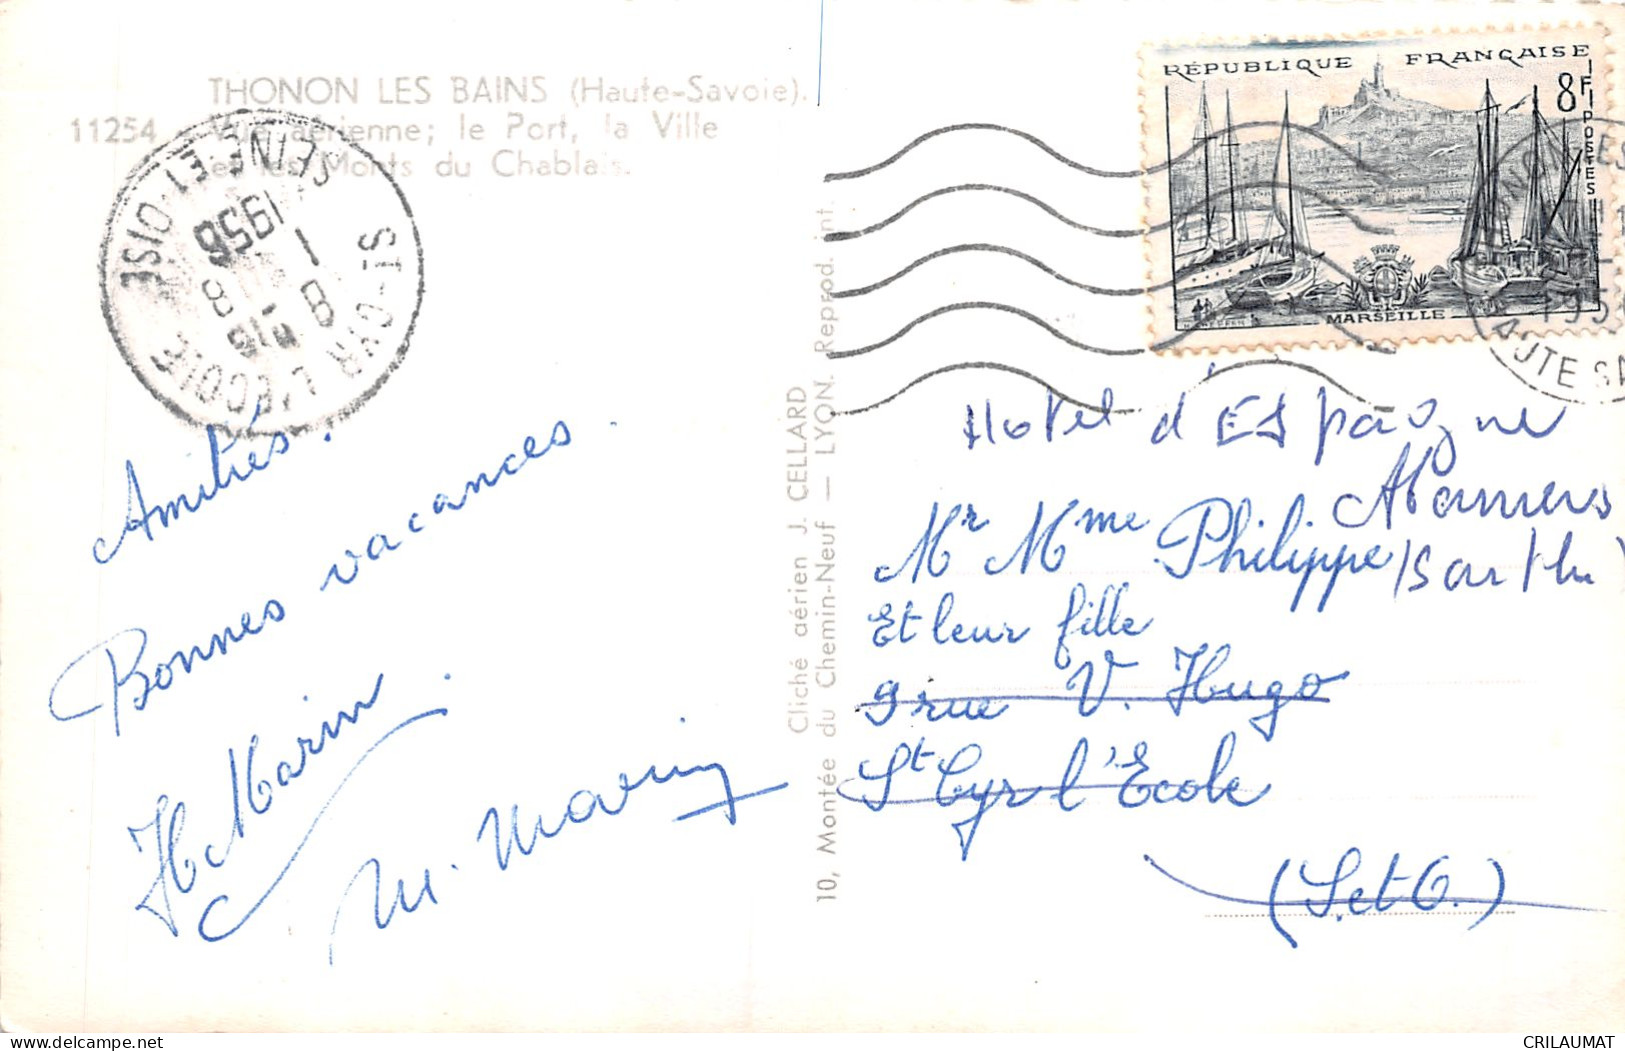 THONON LES BAINS (Haute-Savoie).
11254 - Vue aérienne; le Port, la Ville
et les Monts du Chablais.
ST-CYR L'ECOLE
SEINE ET OISE
1956
Amitiés.
Bonnes vacances.
H Marin.
M. Marin
Cliché aérien J. CELLARD
10, Montée du Chemin-Neuf — LYON. Reprod. int.
RÉPUBLIQUE FRANÇAISE
8F
POSTES
MARSEILLE
Hotel d'Espagne
Mamers
(Sarthe)
Mr Mme Philippe
Et leur fille
9 rue V. Hugo
St Cyr l'Ecole
(S. et O.)
CRILAUMAT